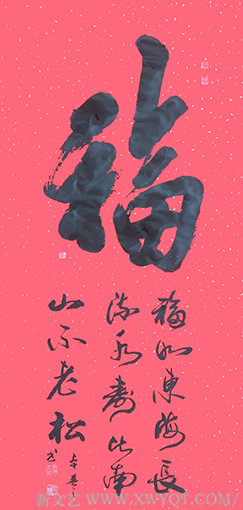 福
福如东海长
流水寿比南
山不老松
新文艺 WWW.XWYQT.COM/